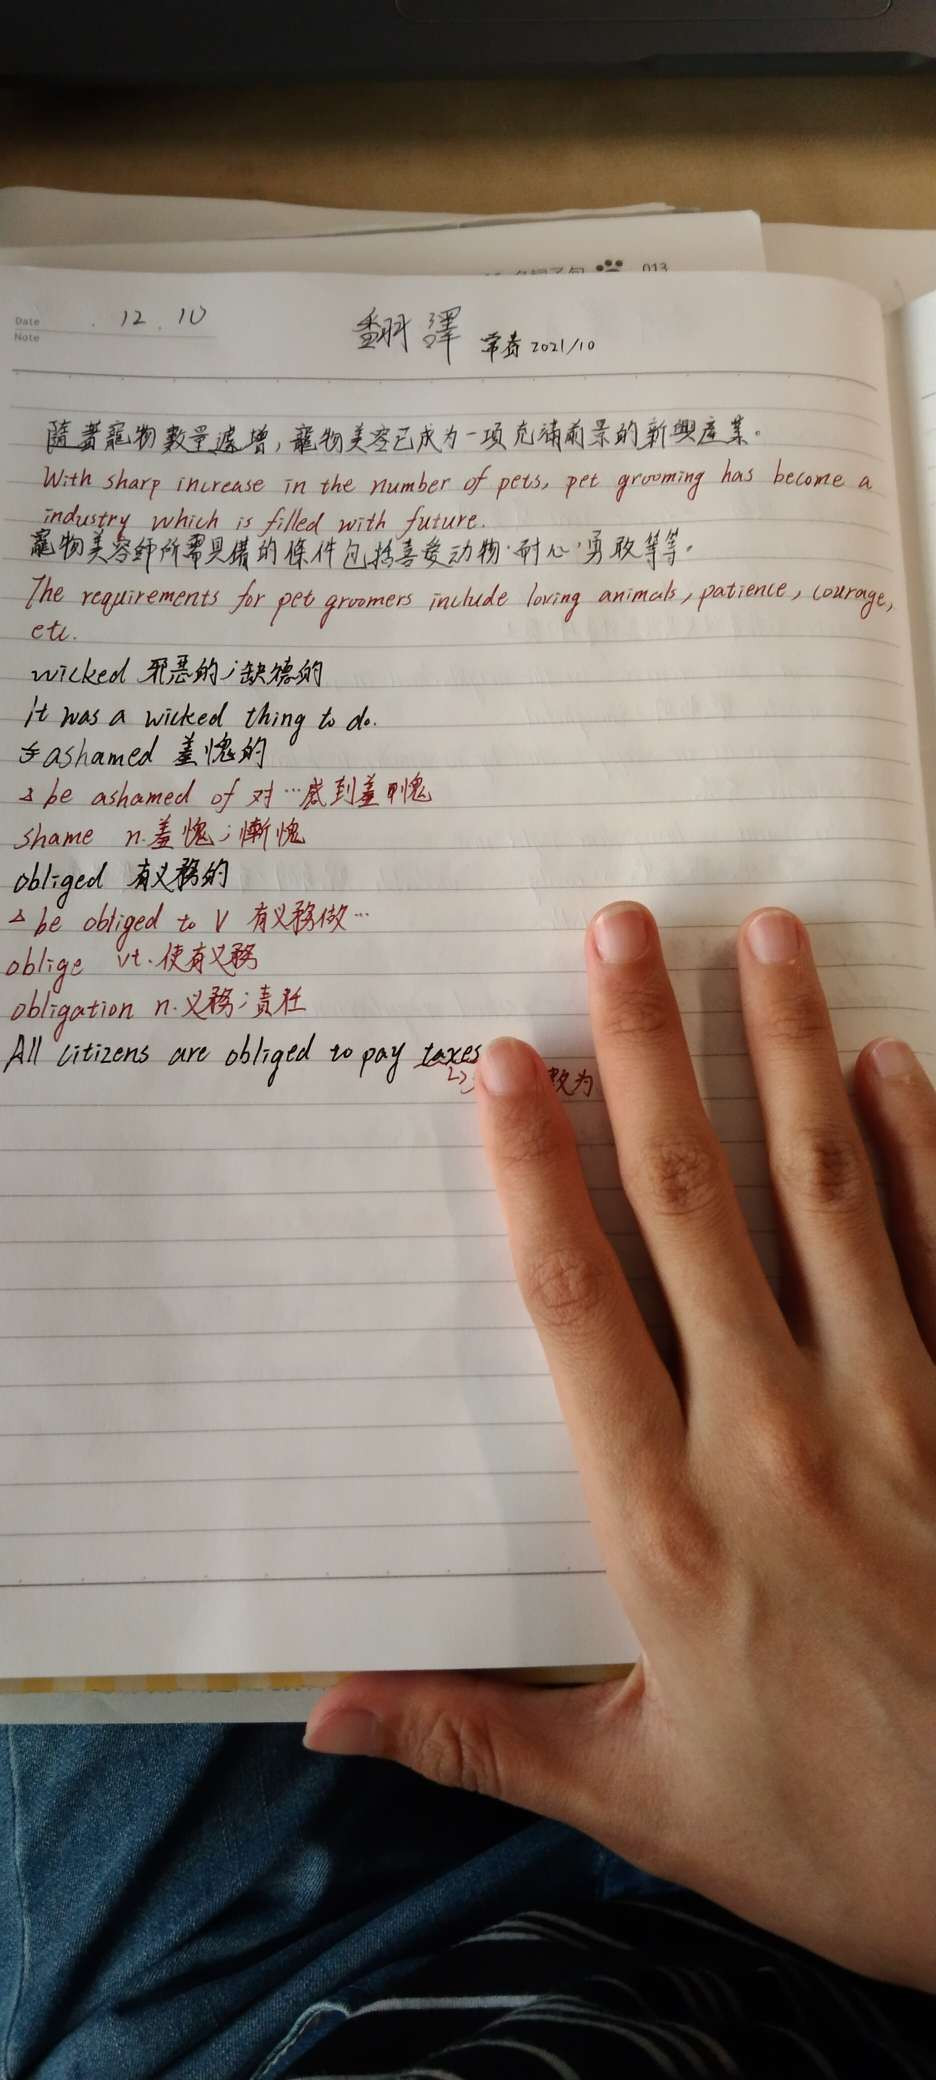 013
Date 12.10
Note
翻譯 常春 2021/10
隨著寵物數量遽增，寵物美容已成为一項充滿前景的新興產業。
With sharp increase in the number of pets, pet grooming has become a
industry which is filled with future.
寵物美容師所需具備的條件包括喜爱动物、耐心、勇敢等等。
The requirements for pet groomers include loving animals, patience, courage,
etc.
wicked 邪恶的；缺德的
It was a wicked thing to do.
ashamed 羞愧的
△ be ashamed of 对…感到羞愧
shame n.羞愧；慚愧
obliged 有义務的
△ be obliged to V 有义務做…
oblige vt.使有义務
obligation n.义務；責任
All citizens are obliged to pay taxes
数为